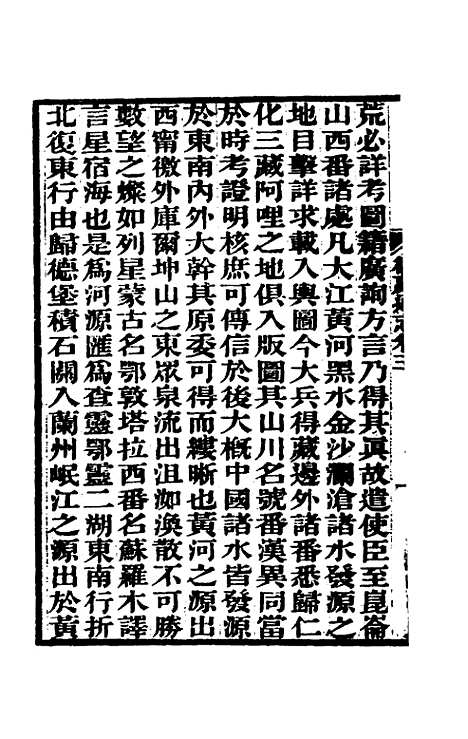 荒必詳考圖籍廣詢方言乃得其眞故遣使臣至崑崙
山西番諸處凡大江黃河黑水金沙瀾滄諸水發源之
地目擊詳求載入輿圖今大兵得藏邊外諸番悉歸仁
化三藏阿哩之地俱入版圖其山川名號番漢異同當
於時考證明核庶可傳信於後大槪中國諸水皆發源
於東南內外大幹其原委可得而縷晰也黃河之源出
西甯徼外庫爾坤山之東眾泉流出沮洳渙散不可勝
數望之燦如列星蒙古名鄂敦塔拉西番名蘇羅木譯
言星宿海也是爲河源匯爲查靈鄂靈二湖東南行折
北復東行由歸德堡積石關入蘭州岷江之源出於黃